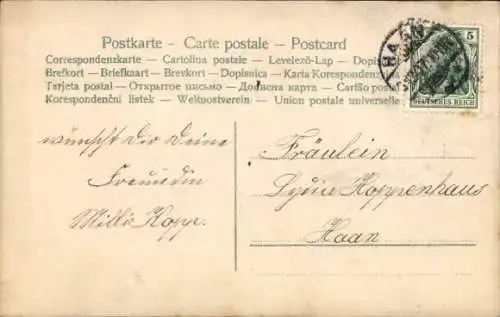 Postkarte - Carte postale - Postcard
Correspondenzkarte — Cartolina postale — Levelező-Lap —
Brefkort — Briefkaart — Brevkort — Dopisnica — Karta
Tarjeta postal — Открытое письмо — Дописна карта — Cartão
Korespondenční listek — Weltpostverein — Union postale universelle
5
DEUTSCHES REICH
wünscht Dir Deine
Freundin
Milli Kopp.
Fräulein
Hoppenhaus
Haan